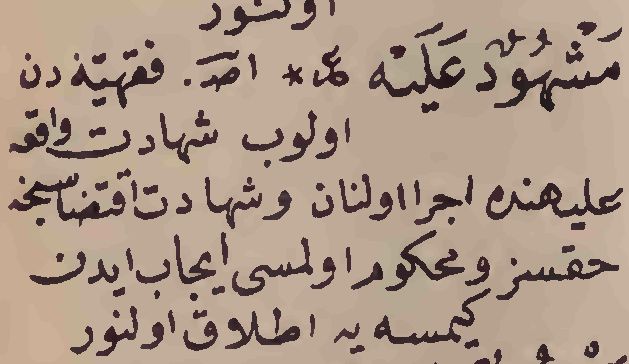 اولنور
مَشْهُودٌ عَلَيْه * اصـ. فقهیّه دن
اولوب شهادت واقعه
علیهنده اجرا اولنان و شهادت اقتضاسنجه
حقسز و محکوم اولمسی ایجاب ایدن
کیمسه یه اطلاق اولنور